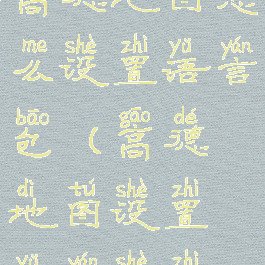 me shè zhì yǔ yán
么设置语言
bāo gāo dé
包（高德
dì tú shè zhì
地图设置
yǔ yán shè zhì